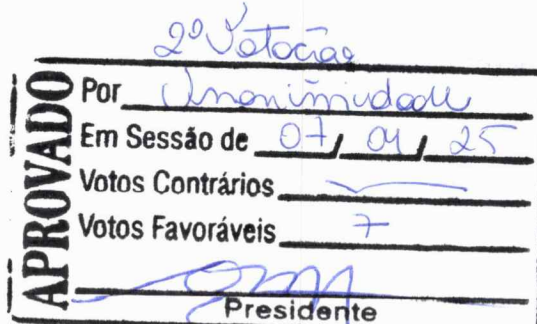 2º Votação
APROVADO
Por Unanimidade
Em Sessão de 07 / 04 / 25
Votos Contrários —
Votos Favoráveis 7
Presidente